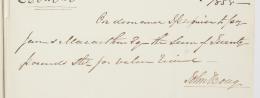 1858
On demand I promise to pay
James Macarthur Esq the Sum of Twenty
pounds Stg for value
John